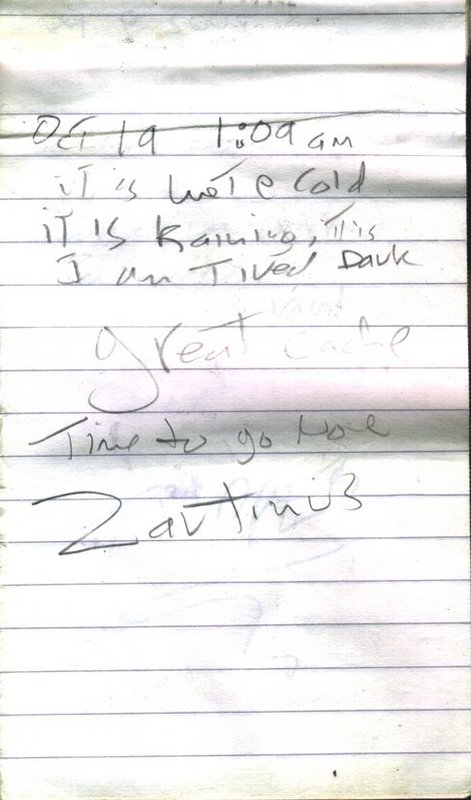 Oct 19 1:09 am
it is wet & cold
it is Raining, it is
I am Tired Dark
great cache
Time to go Home
Zartimus